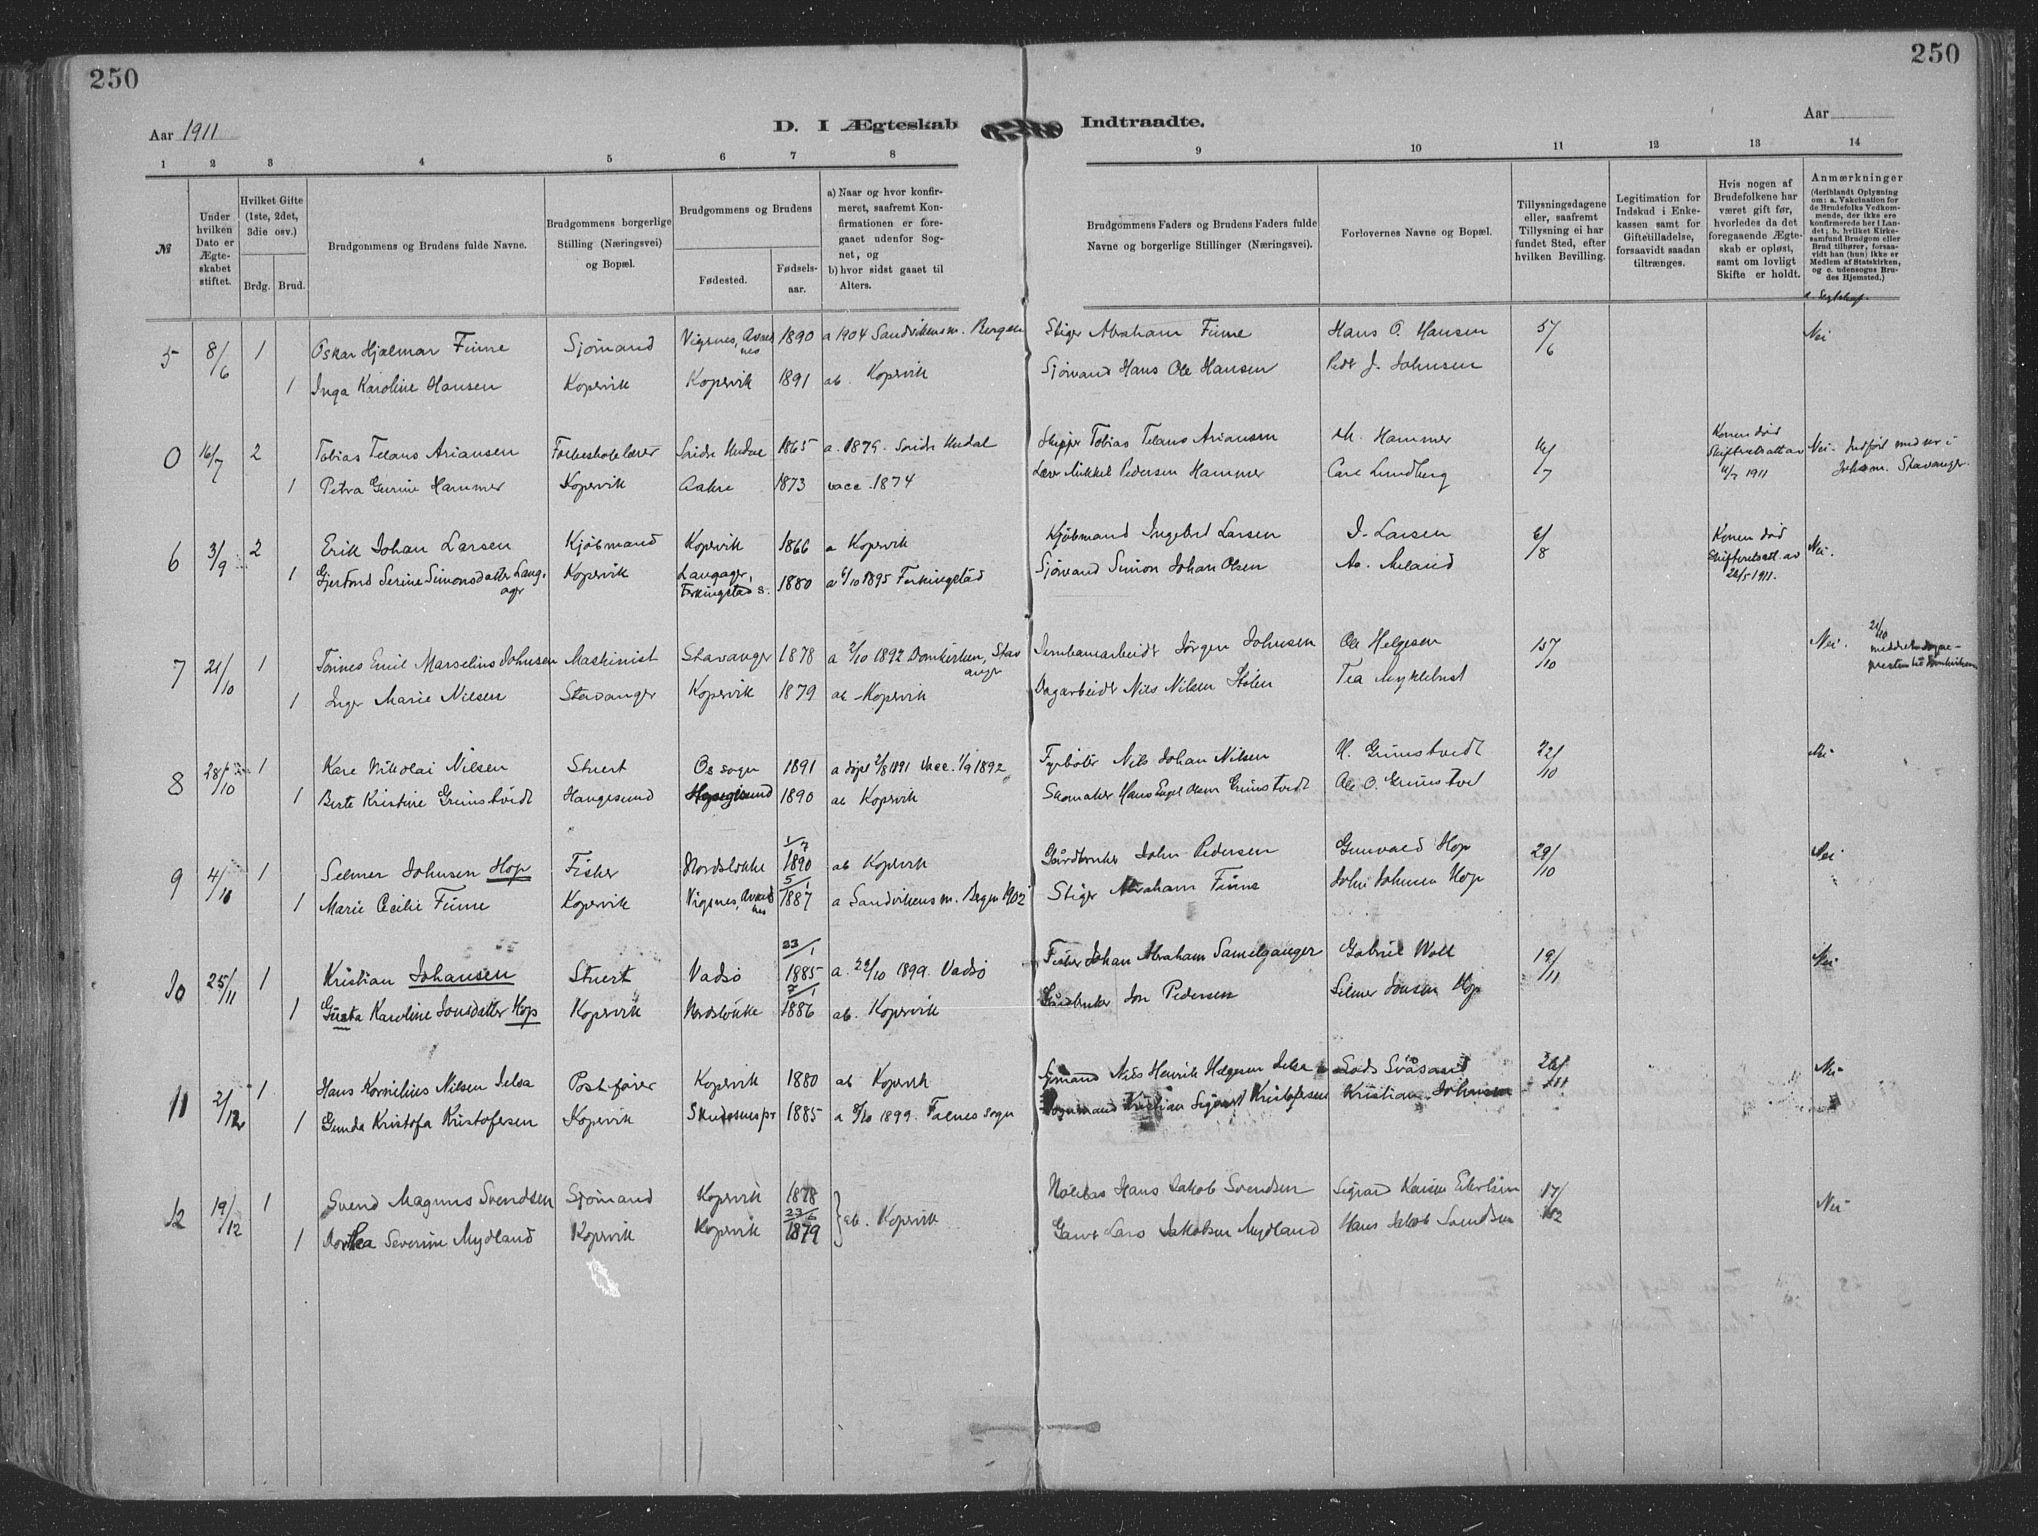 250
250
Aar 1911
D. I Ægteskab Indtraadte.
Aar
1 2 3 4 5 6 7 8 9 10 11 12 13 14
№
Under hvilken Dato er Ægteskabet stiftet.
Hvilket Gifte (1ste, 2det, 3die osv.)
Brdg. Brud.
Brudgommens og Brudens fulde Navne.
Brudgommens borgerlige Stilling (Næringsvei) og Bopæl.
Brudgommens og Brudens
Fødested.
Fødselsaar.
a) Naar og hvor konfirmeret, saafremt Konfirmationen er foregaaet udenfor Sognet, og
b) hvor sidst gaaet til Alters.
Brudgommens Faders og Brudens Faders fulde Navne og borgerlige Stillinger (Næringsvei).
Forlovernes Navne og Bopæl.
Tillysningsdagene eller, saafremt Tillysning ei har fundet Sted, efter hvilken Bevilling.
Legitimation for Indskud i Enkekassen samt for Giftetilladelse, forsaavidt saadan tiltrænges.
Hvis nogen af Brudefolkene har været gift før, hvorledes da det foregaaende Ægteskab er opløst, samt om lovligt Skifte er holdt.
Anmærkninger
(deriblandt Oplysning om: a. Vakcination for de Brudefolks Vedkommende, der ikke ere konfirmerede her i Landet; b. hvilket Kirkesamfund Brudgom eller Brud tilhører, forsaavidt han (hun) ikke er Medlem af Statskirken, og c. udensogns Brudes Hjemsted.)
5 8/6 1 Oskar Hjalmar Finne Sjømand Vigsnes, Avaldsnes 1890 a 1904 Sandvikens m. Bergen Stiger Abraham Finne Hans O. Hansen 5/6 Nei
1 Inga Karoline Hansen Kopervik Kopervik 1891 ab. Kopervik Sjømand Hans Ole Hansen Peder J. Johnsen
0 16/7 2 Tobias Telans Ariansen 1865 a. 1879. Skipper Tobias Telans Ariansen Hammer /7 Konen død 1911 Nei. Indført med nr i Stavanger.
1 Petra Gurine Hammer Kopervik Aakre 1873 vacc. 1874 Mikkel Pedersen Hammer Carl Lundberg
6 3/9 2 Erik Johan Larsen Kjøbmand Kopervik 1866 a Kopervik Kjøbmand Ingebret Larsen I. Larsen 6/8 Konen død Skifteretsatt. av 26/5 1911. Nei.
1 Gjertrud Serine Simonsdatter Langager Kopervik Langager, Ferkingstad s. 1880 a 6/10 1895 Ferkingstad Sjømand Simon Johan Olsen
7 21/10 1 Tønnes Emil Marselius Johnsen Maskinist Stavanger 1878 a 2/10 1892 Domkirken, Stavanger Jernbanearbeider Jørgen Johnsen Ole Helgesen 15/10 Nei. 21/10
1 Inger Marie Nilsen Stavanger Kopervik 1879 ab Kopervik Dagarbeider Nils Nilsen Stølen Tea Myklebust
8 28/10 1 Kare Nikolai Nilsen Stuert Os sogn 1891 a døpt 2/8 1891 Vacc. 1/9 1892 Fyrbøter Nils Johan Nilsen H. Grimstvedt 22/10 Nei
1 Berte Kristine Grimstvedt Haugesund 1890 ab Kopervik Skomaker Hans Engel Olsen Grimstvedt Ole O. Grimstvet
9 4/10 1 Selmer Johnsen Hop Fisker Nordstokke 1/7 1890 ab Kopervik Gårdbruker John Pedersen Gunvald Hop 29/10 Nei
1 Marie Cecilie Finne Kopervik Vigsnes, Avaldsnes 5/1 1887 a Sandvikens m. Bergen 1902 Stiger Abraham Finne John Johnsen Hop
10 25/11 1 Kristian Johansen Stuert Vadsø 23/1 1885 a. 22/10 1899. Vadsø Fisker Johan Abraham Samelganger Gabriel Woll 19/11 Nei
1 Gusta Karoline Jonsdatter Hop Kopervik Nordstokke 7/1 1886 ab. Kopervik Gårdbruker Jon Pedersen Selmer Jonsen Hop
11 2/12 1 Hans Kornelius Nilsen Jelsa Postfører Kopervik 1880 ab Kopervik Sjømand Nils Henrik Helgesen Jelsa 26/11 Nei
1 Gunda Kristofa Kristofersen Kopervik Skudesnes pr 1885 a 8/10 1899. Falnes sogn Kristian Sigvart Kristofersen Kristian Johansen
12 19/12 1 Svend Magnus Svendsen Sjømand Kopervik 1878 ab. Kopervik Hans Jakob Svendsen 17/12 Nei
1 Dorthea Severine Mydland Kopervik Kopervik 23/6 1879 Garver Lars Jakobsen Mydland Hans Jakob Svendsen